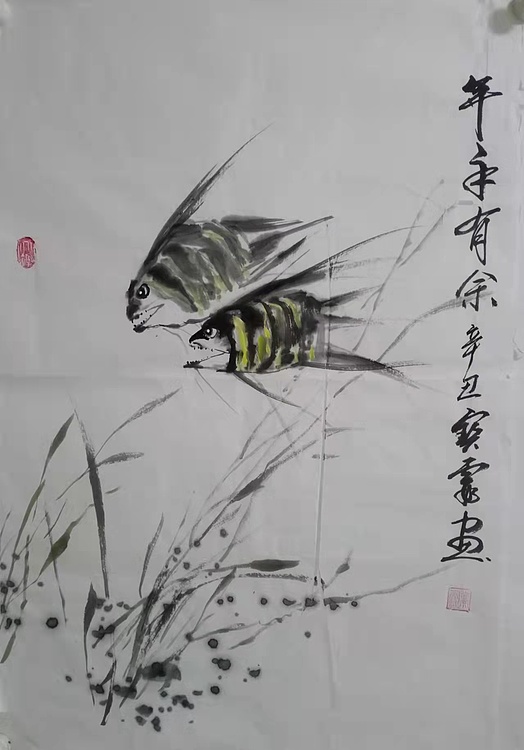 年年有余辛丑宝霖画